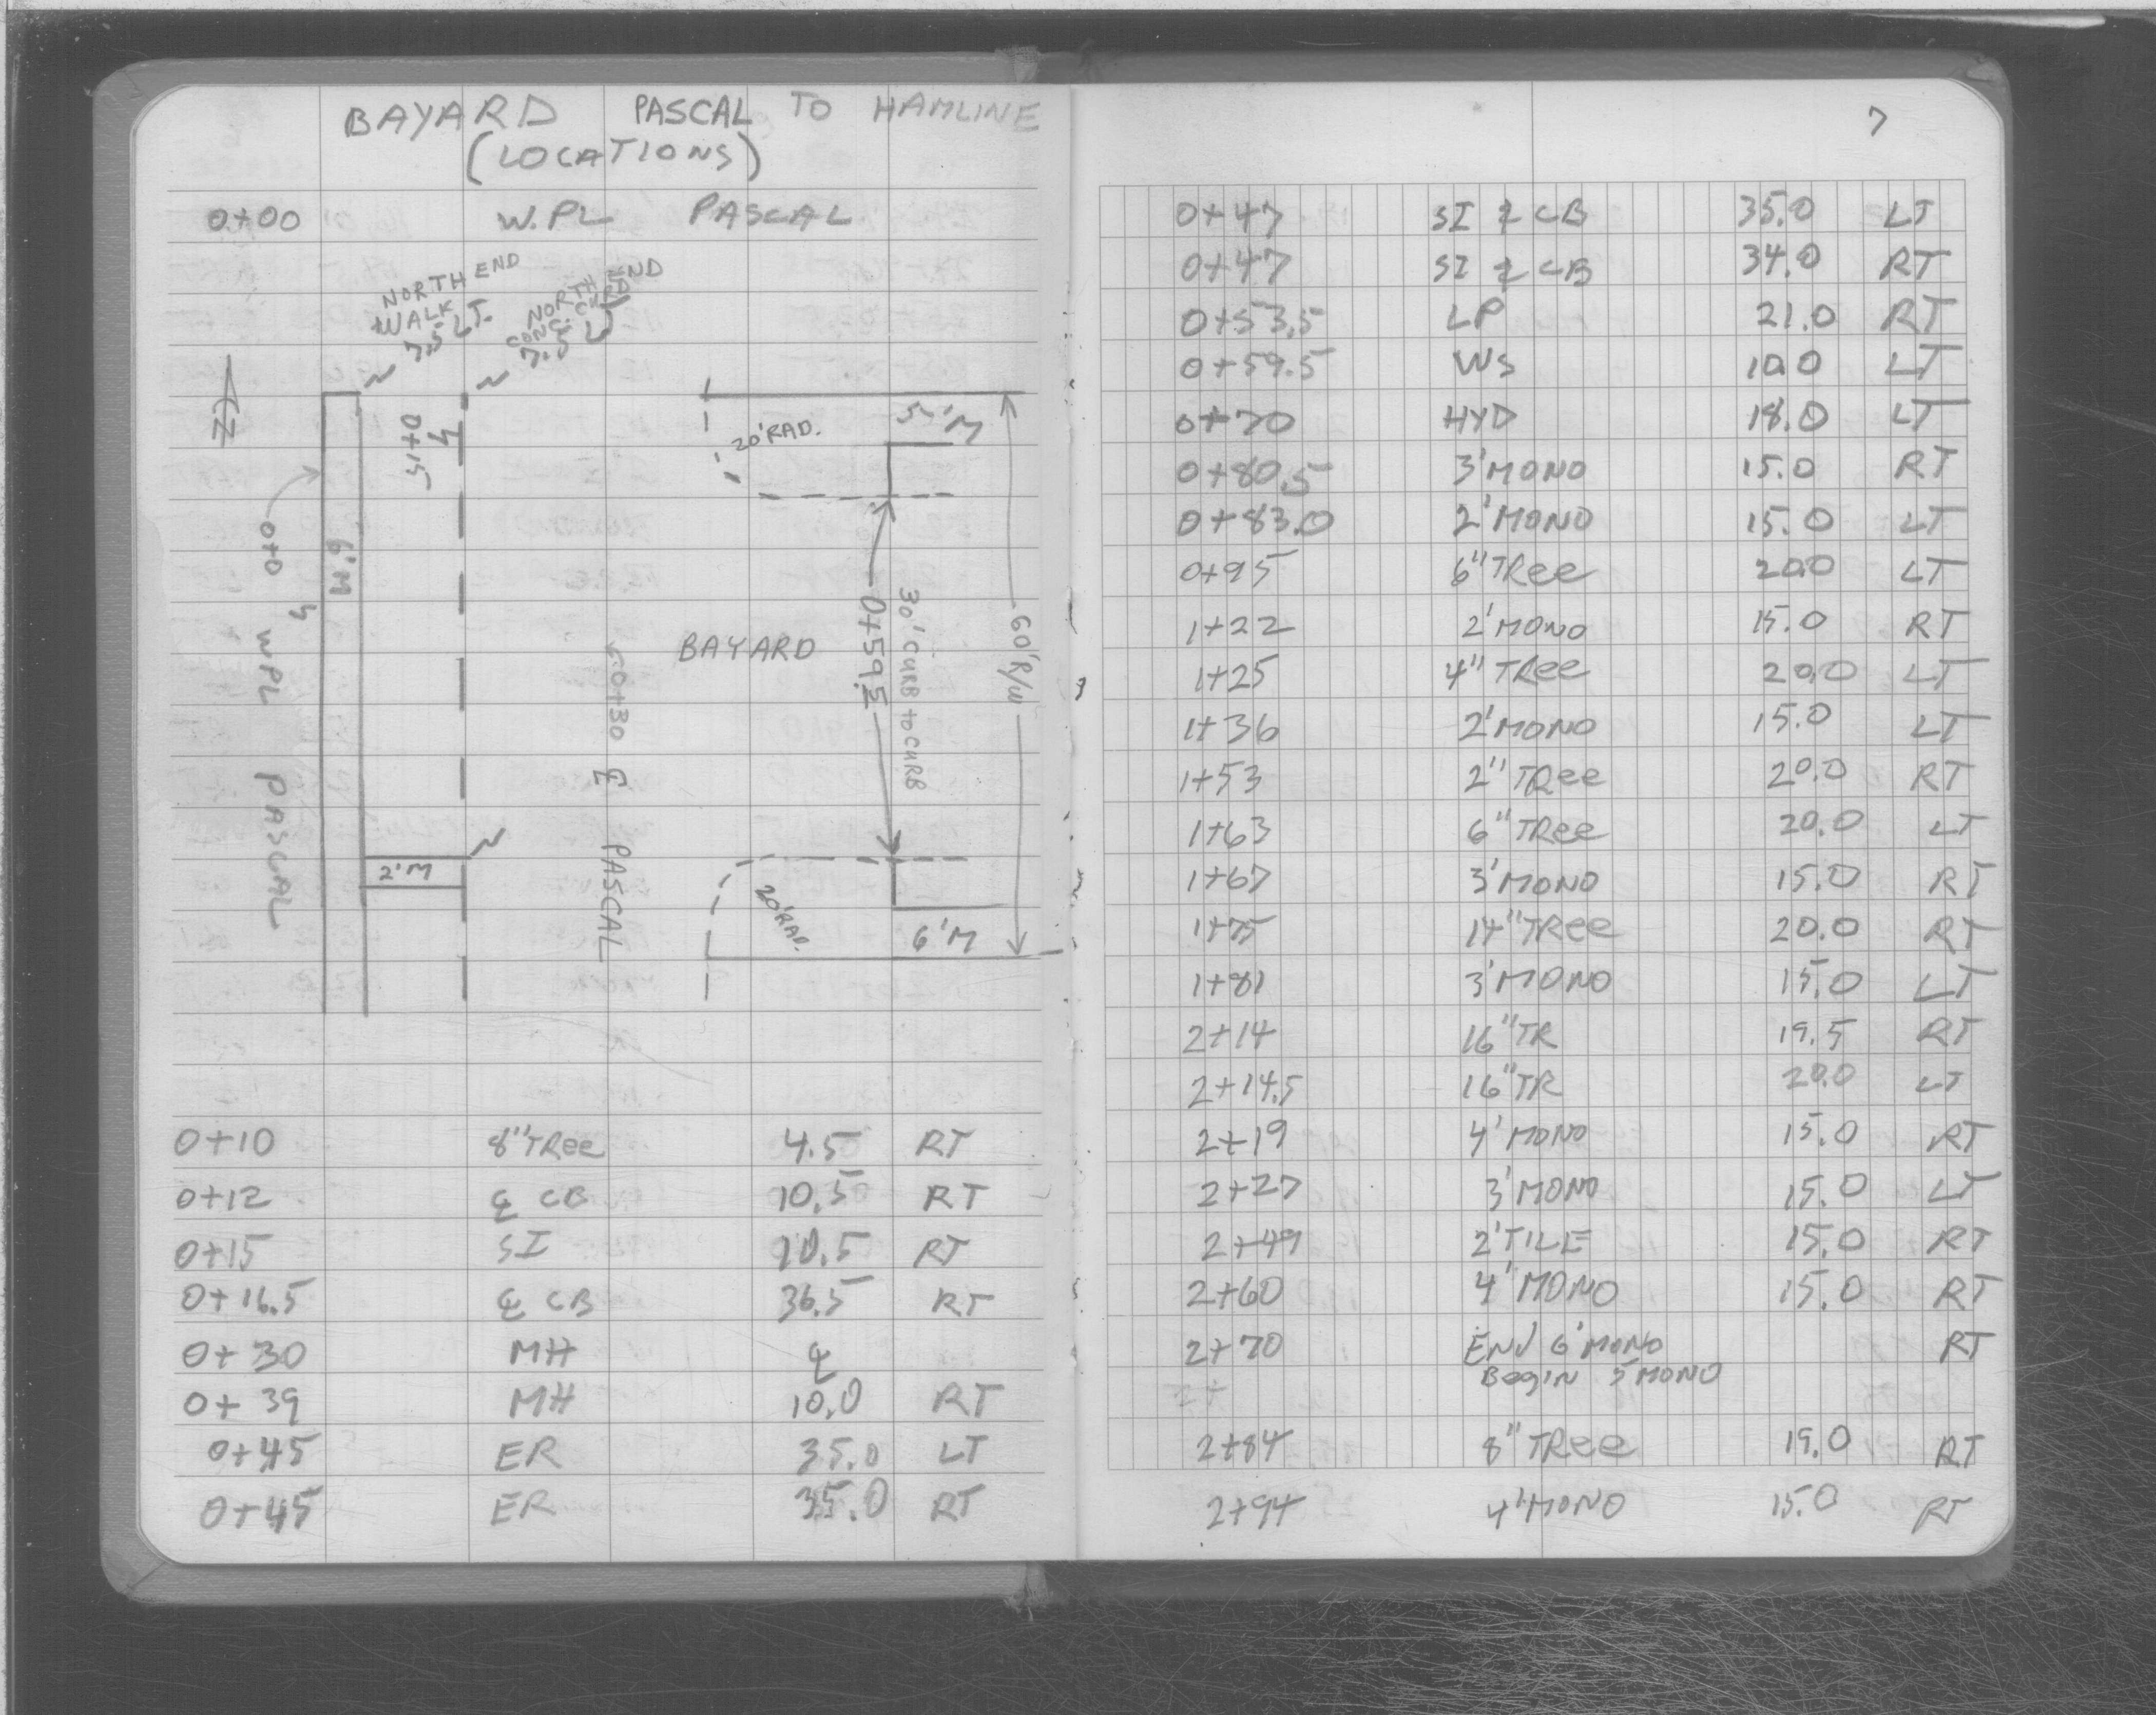 BAYARD PASCAL TO HAMLINE
(LOCATIONS)
0+00 W.PL PASCAL
NORTH END
WALK
7.5 LT.
NORTH END
CONC. CURB
7.5 LT
N
0+15
20'RAD.
5'M
6'M
0+0 = WPL PASCAL
BAYARD
0+59.5
30' CURB to CURB
60' R/W
0+30 ℄ PASCAL
2'M
20'RAD.
6'M
0+10 8" TRee 4.5 RT
0+12 ℄ CB 10.5 RT
0+15 SI 10.5 RT
0+16.5 ℄ CB 36.5 RT
0+30 MH ℄
0+39 MH 10.0 RT
0+45 ER 35.0 LT
0+45 ER 35.0 RT
7
0+47 SI ℄ CB 35.0 LT
0+47 SI ℄ CB 34.0 RT
0+53.5 LP 21.0 RT
0+59.5 WS 10.0 LT
0+70 HYD 18.0 LT
0+80.5 3'MONO 15.0 RT
0+83.0 2'MONO 15.0 LT
0+95 6" TRee 20.0 LT
1+22 2'MONO 15.0 RT
1+25 4" TRee 20.0 LT
1+36 2'MONO 15.0 LT
1+53 2" TRee 20.0 RT
1+63 6" TRee 20.0 LT
1+67 3'MONO 15.0 RT
1+75 14" TRee 20.0 RT
1+81 3'MONO 15.0 LT
2+14 16" TR 19.5 RT
2+14.5 16" TR 20.0 LT
2+19 4'MONO 15.0 RT
2+27 3'MONO 15.0 LT
2+49 2'TILE 15.0 RT
2+60 4'MONO 15.0 RT
2+70 END 6'MONO RT
Begin 5'MONO
2+84 8" TRee 19.0 RT
2+94 4'MONO 15.0 RT